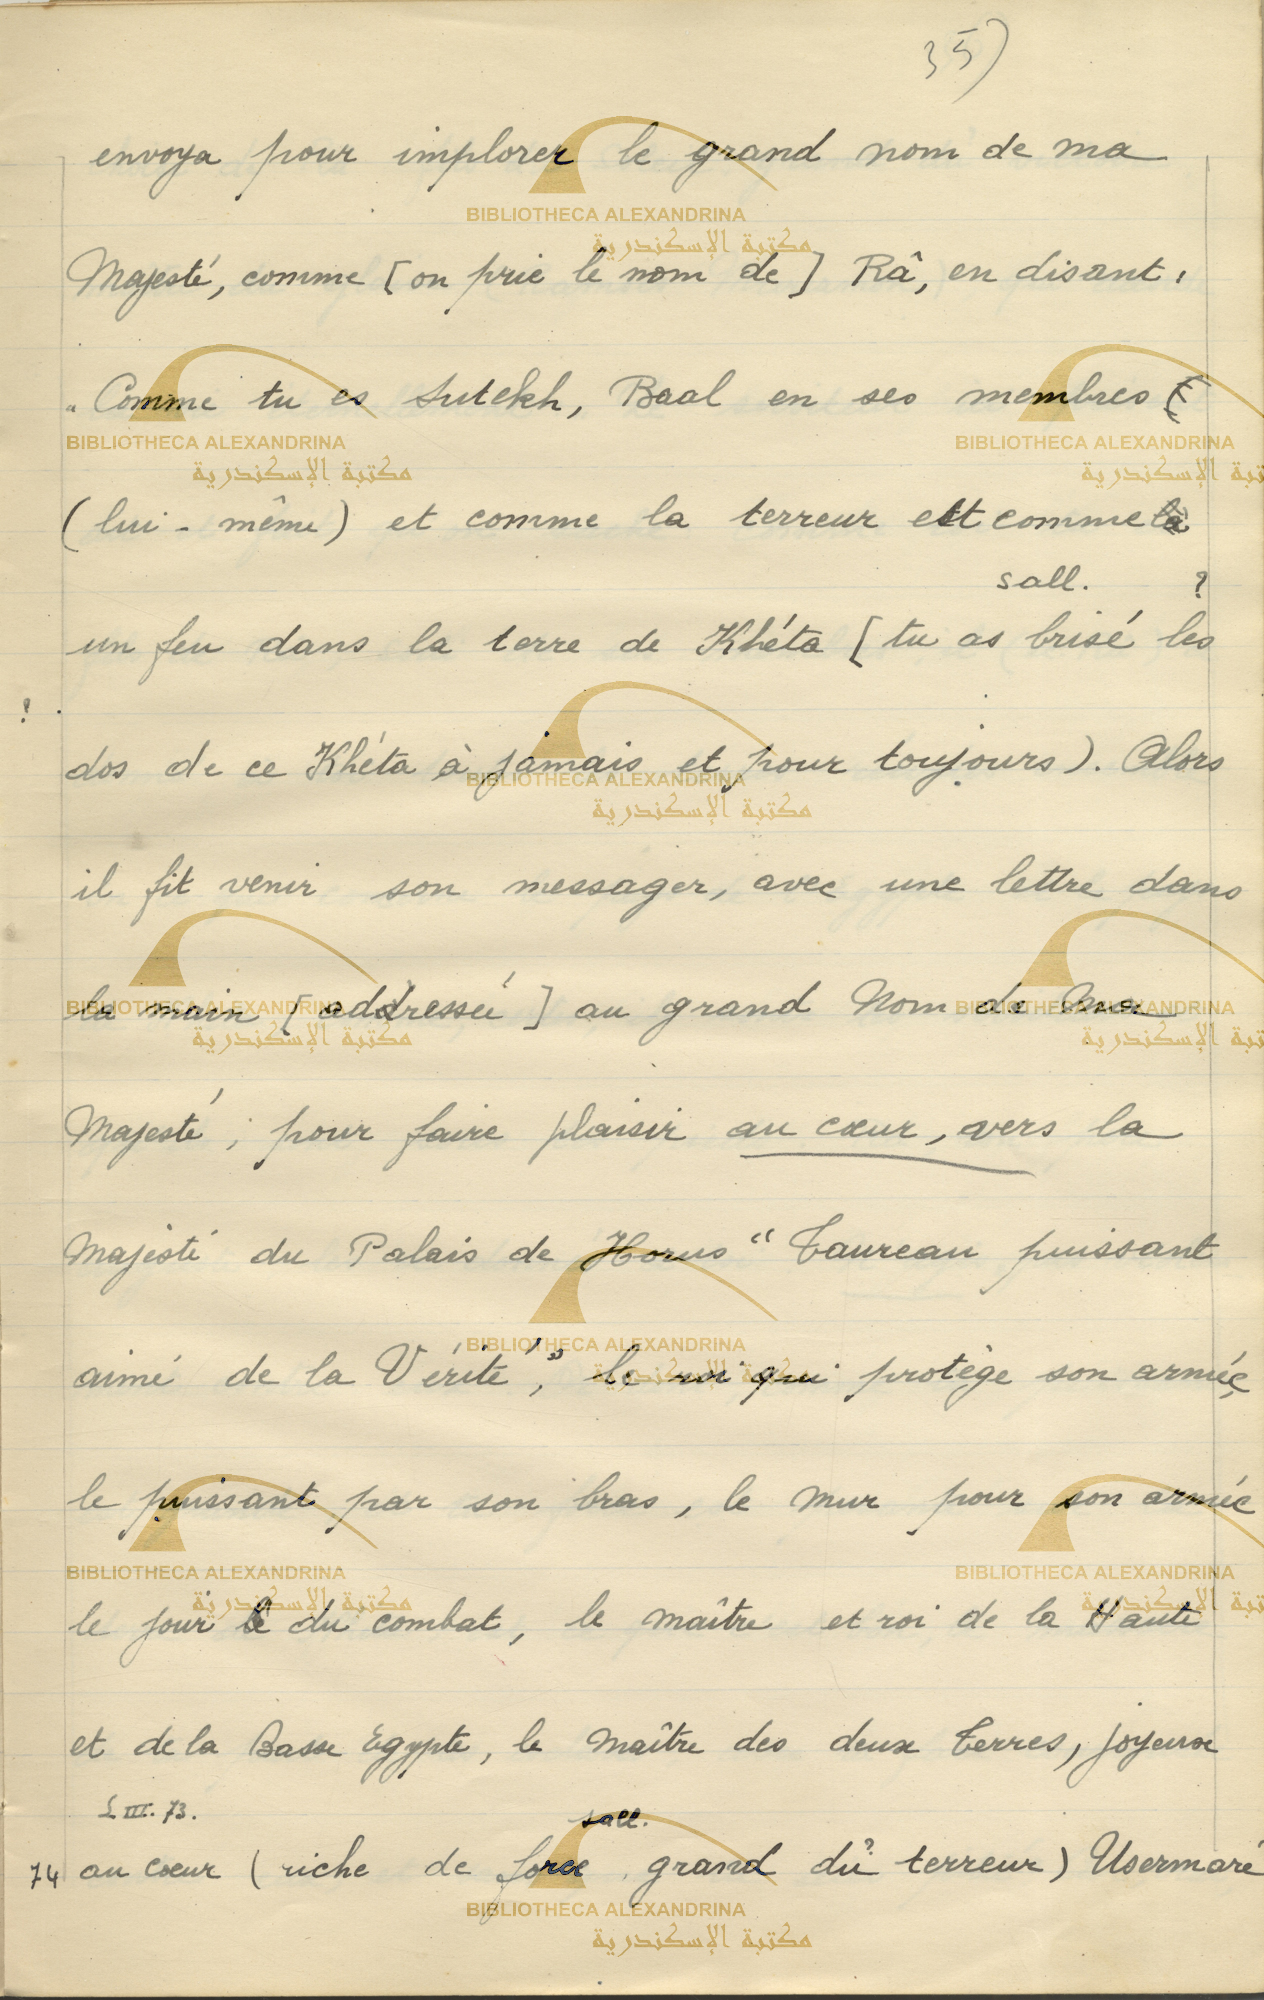 35)
envoya pour implorer le grand nom de ma
Majesté, comme [on prie le nom de] Râ, en disant,
"Comme tu es Sutekh, Baal en ses membres
(lui-même) et comme la terreur est comme
sall. ?
un feu dans la terre de Khéta [tu as brisé les
?
dos de ce Khéta à jamais et pour toujours). Alors
il fit venir son messager, avec une lettre dans
la main [addressée] au grand Nom de Ma
Majesté, pour faire plaisir au cœur, vers la
Majesté du Palais de Horus "Taureau puissant
aimé de la Vérité," le roi qui protège son armée,
le puissant par son bras, le mur pour son armée
le jour du combat, le maître et roi de la Haute
et de la Basse Egypte, le maître des deux Terres, joyeux
L III. 73.
sall.
74 au cœur (riche de force grand du ? terreur) Usermaré
BIBLIOTHECA ALEXANDRINA
مكتبة الإسكندرية